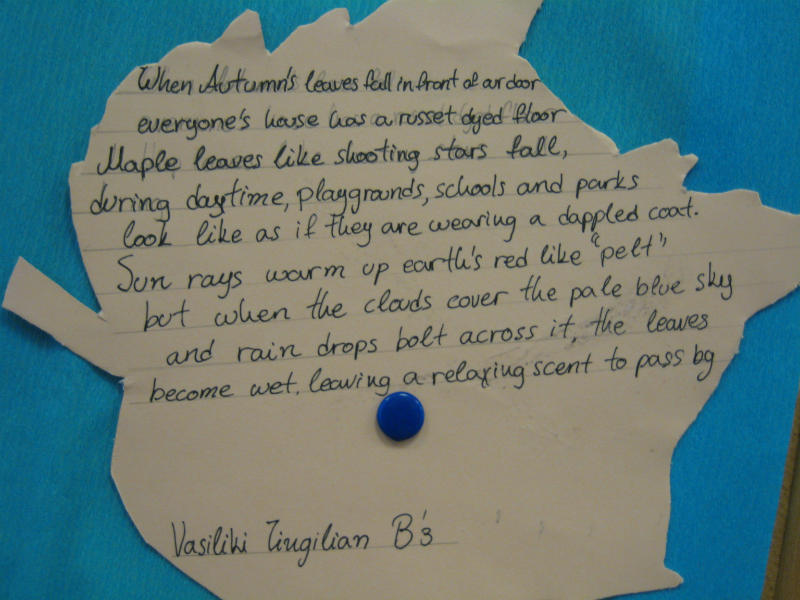 When Autumn's leaves fall in front of our door
everyone's house has a russet dyed floor
Maple leaves like shooting stars fall,
during daytime, playgrounds, schools and parks
look like as if they are wearing a dappled coat.
Sun rays warm up earth's red like "pelt"
but when the clouds cover the pale blue sky
and rain drops bolt across it, the leaves
become wet, leaving a relaxing scent to pass by
Vasiliki Tingilian B'3